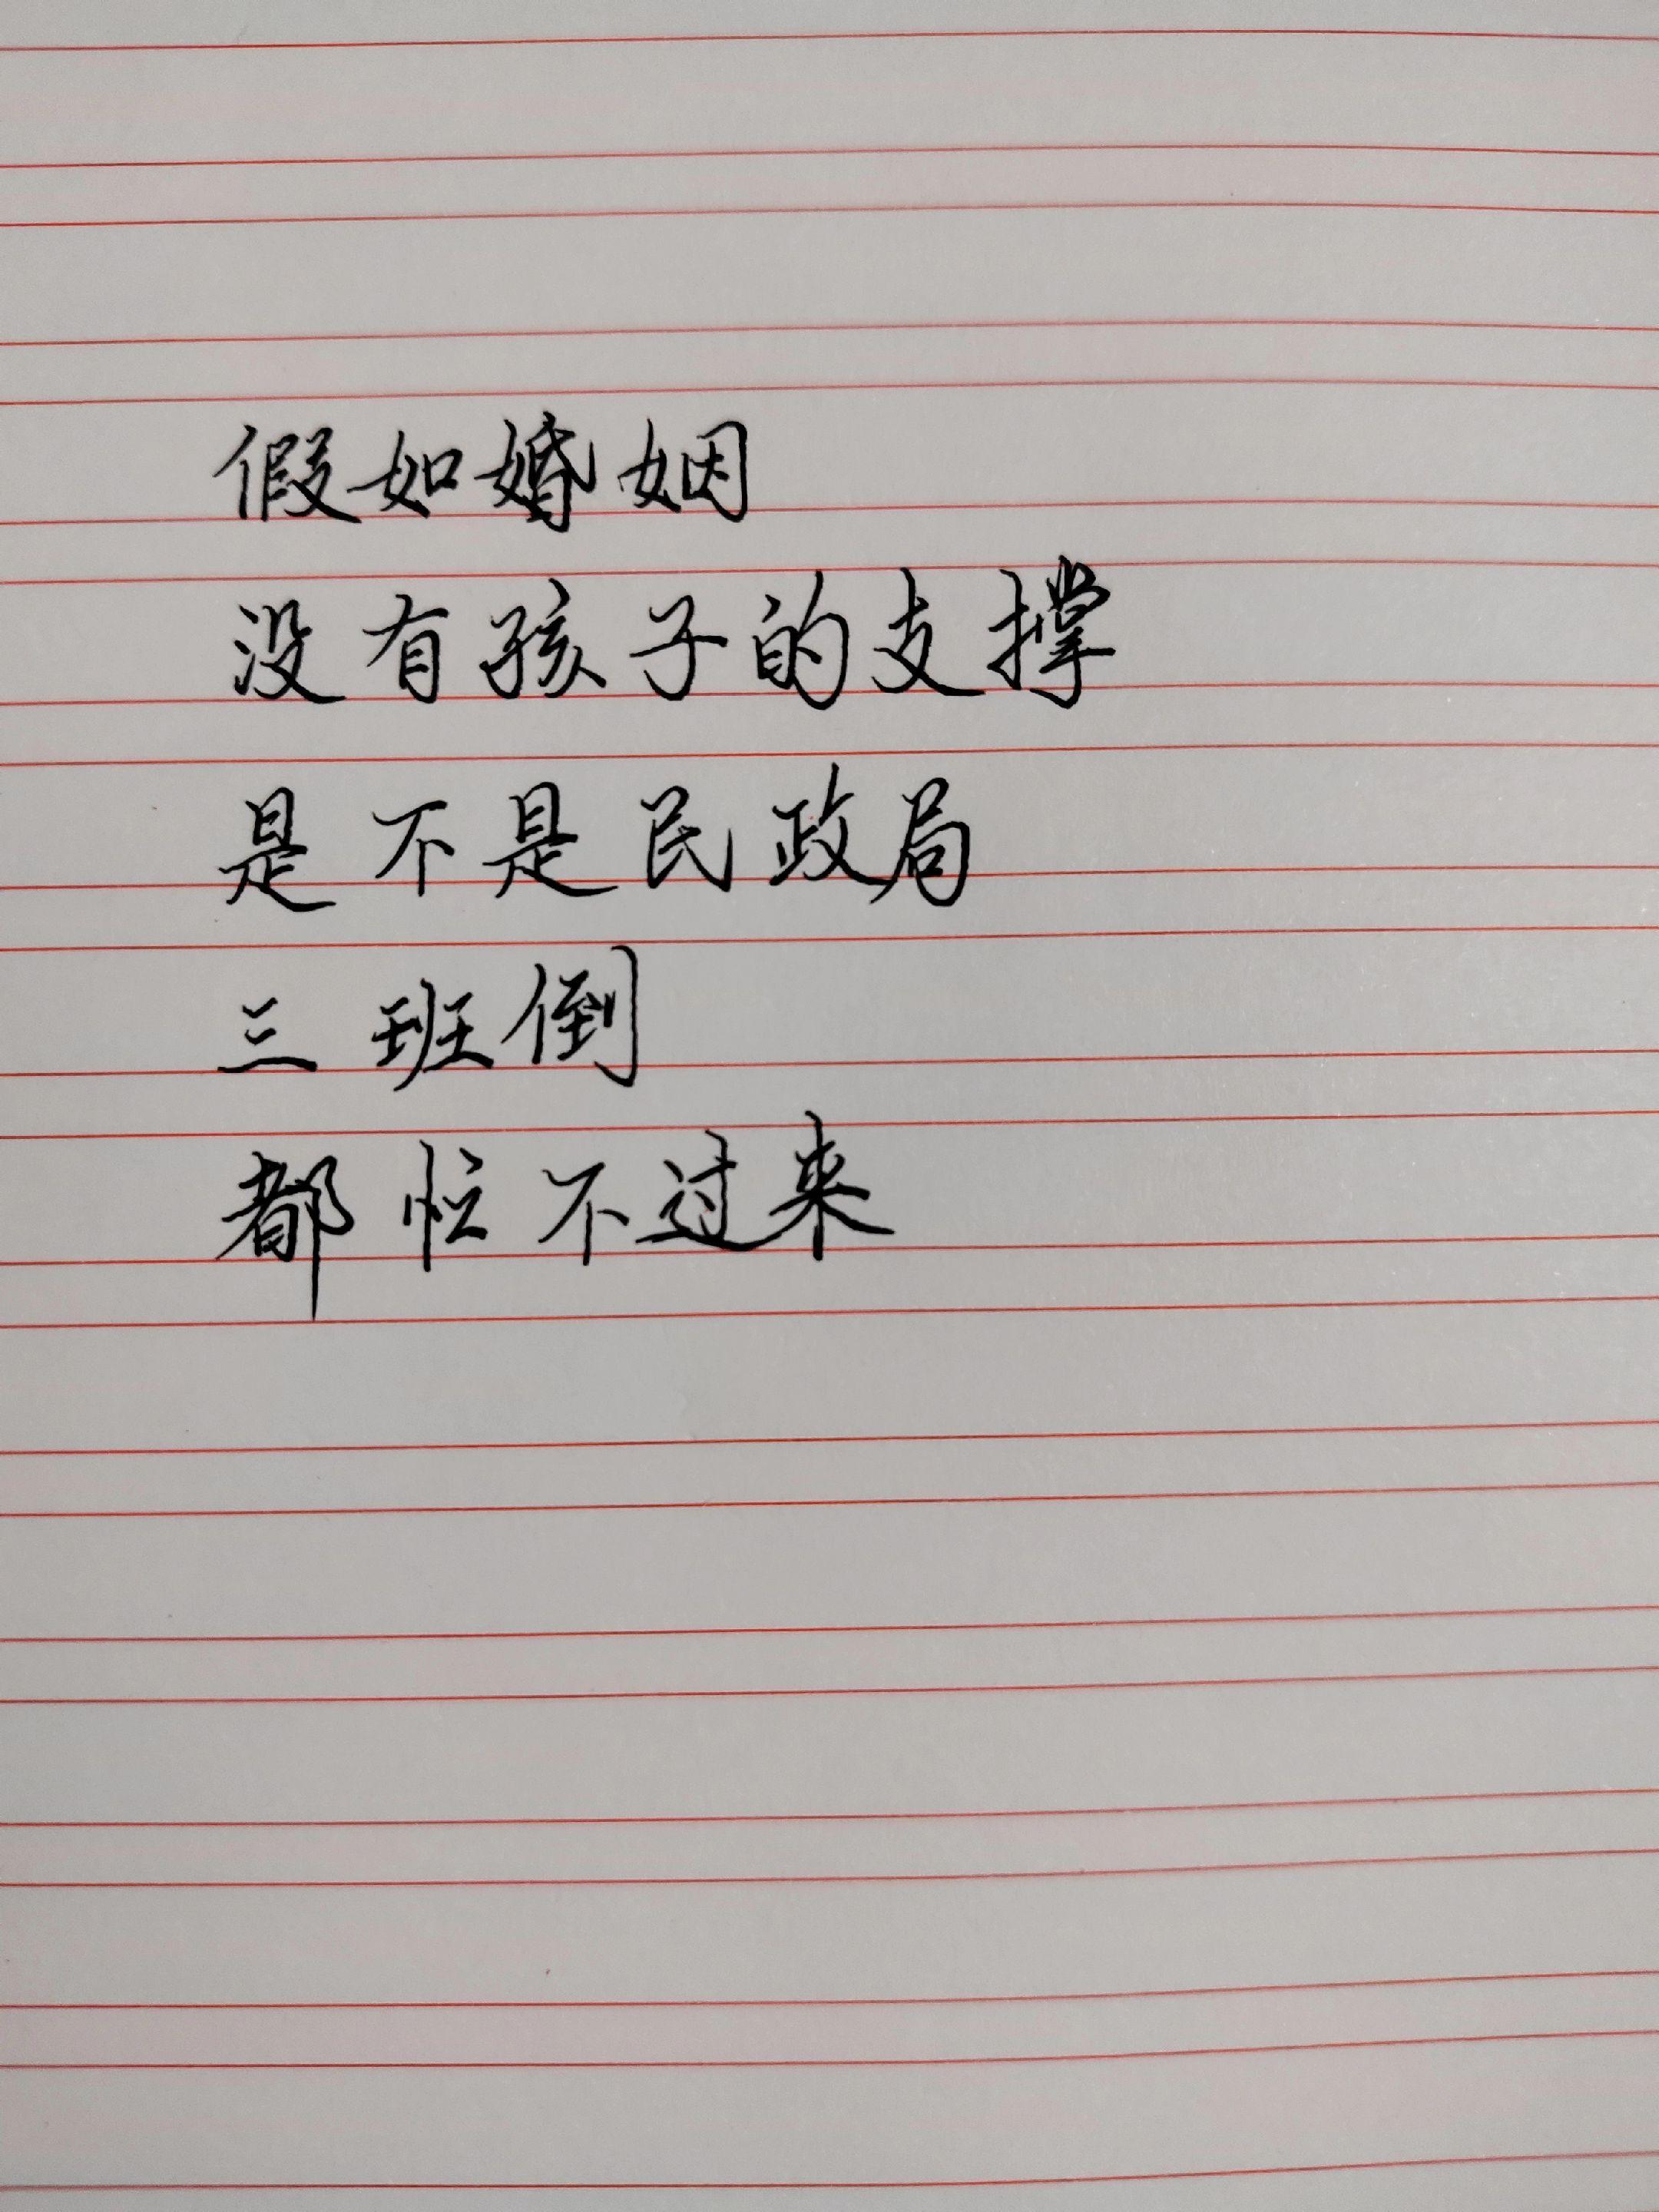 假如婚姻
没有孩子的支撑
是不是民政局
三班倒
都忙不过来